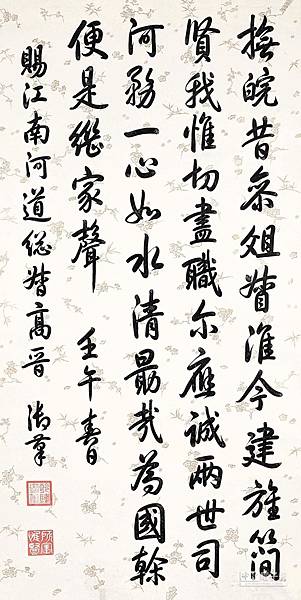 撫皖昔叅俎督淮今建旌簡
賢我惟切盡職尔應誠兩世司
河務一心如水清勗哉為國榦
便是繼家聲 壬午春日
賜江南河道總督高晉 御筆